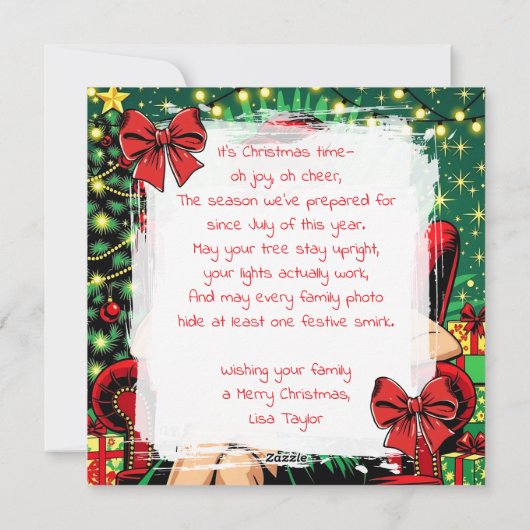 It's Christmas time-
oh joy, oh cheer,
The season we've prepared for
since July of this year.
May your tree stay upright,
your lights actually work,
And may every family photo
hide at least one festive smirk.
wishing your family
a Merry Christmas,
Lisa Taylor
Zazzle